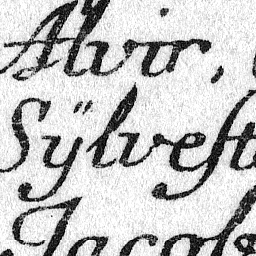 Alvir,
Sÿlvest
Jacob